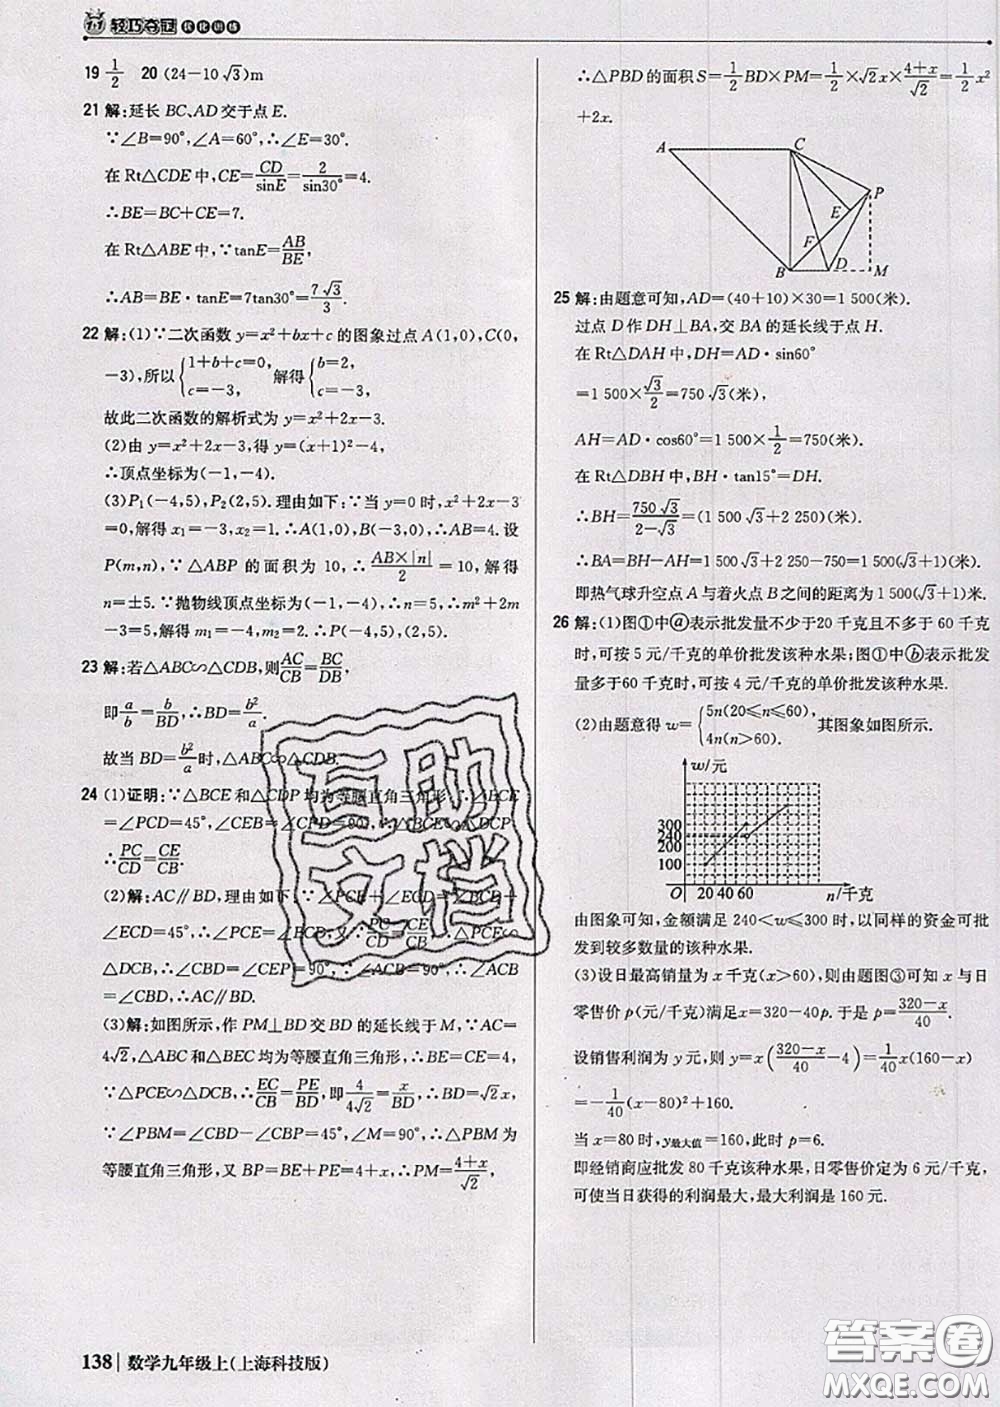 1+1 轻巧夺冠 优化训练
19 1/2  20 (24-10√3)m
21 解:延长 BC、AD 交于点 E.
∵∠B=90°,∠A=60°,∴∠E=30°.
在 Rt△CDE 中,CE=CD/sinE=2/sin30°=4.
∴BE=BC+CE=7.
在 Rt△ABE 中,∵tanE=AB/BE,
∴AB=BE·tanE=7tan30°=7√3/3.
22 解:(1)∵二次函数 y=x²+bx+c 的图象过点 A(1,0),C(0,
-3),所以{1+b+c=0, c=-3, 解得{b=2, c=-3,
故此二次函数的解析式为 y=x²+2x-3.
(2)由 y=x²+2x-3,得 y=(x+1)²-4,
∴顶点坐标为(-1,-4).
(3)P₁(-4,5),P₂(2,5).理由如下:∵当 y=0 时,x²+2x-3
=0,解得 x₁=-3,x₂=1.∴A(1,0),B(-3,0),∴AB=4.设
P(m,n),∵△ABP 的面积为 10,∴AB×|n|/2=10,解得
n=±5.∵抛物线顶点坐标为(-1,-4),∴n=5,∴m²+2m
-3=5,解得 m₁=-4,m₂=2.∴P(-4,5),(2,5).
23 解:若△ABC∽△CDB,则AC/CB=BC/DB,
即a/b=b/BD,∴BD=b²/a.
故当 BD=b²/a时,△ABC∽△CDB.
24 (1)证明:∵△BCE 和△CDP 均为等腰直角三角形,∴∠ECB
=∠PCD=45°,∠CEB=∠CPD=90°,∴△BCE∽△DCP.
∴PC/CD=CE/CB.
(2)解:AC∥BD,理由如下:∵∠PCE+∠ECD=∠BCD+
∠ECD=45°,∴∠PCE=∠BCD,又PC/CD=CE/CB,∴△PCE∽
△DCB,∴∠CBD=∠CEP=90°,∵∠ACB=90°,∴∠ACB
=∠CBD,∴AC∥BD.
(3)解:如图所示,作 PM⊥BD 交 BD 的延长线于 M,∵AC=
4√2,△ABC 和△BEC 均为等腰直角三角形,∴BE=CE=4,
∵△PCE∽△DCB,∴EC/CB=PE/BD,即4/4√2=x/BD,∴BD=√2x,
∵∠PBM=∠CBD-∠CBP=45°,∠M=90°,∴△PBM 为
等腰直角三角形,又 BP=BE+PE=4+x,∴PM=(4+x)/√2,
∴△PBD 的面积 S=1/2BD×PM=1/2×√2x×(4+x)/√2=1/2x²
+2x.
A C P E F B D M
25 解:由题意可知,AD=(40+10)×30=1 500(米).
过点 D 作 DH⊥BA,交 BA 的延长线于点 H.
在 Rt△DAH 中,DH=AD·sin60°
=1 500×√3/2=750√3(米),
AH=AD·cos60°=1 500×1/2=750(米).
在 Rt△DBH 中,BH·tan15°=DH.
∴BH=750√3/(2-√3)=(1 500√3+2 250)(米).
∴BA=BH-AH=1 500√3+2 250-750=1 500(√3+1)(米).
即热气球升空点 A 与着火点 B 之间的距离为 1 500(√3+1)米.
26 解:(1)图①中ⓐ表示批发量不少于20 千克且不多于 60 千克
时,可按 5 元/千克的单价批发该种水果;图①中ⓑ表示批发
量多于60 千克时,可按 4 元/千克的单价批发该种水果.
(2)由题意得 w={5n(20≤n≤60), 4n(n>60). 其图象如图所示.
w/元
300
240
200
100
O 20 40 60 n/千克
由图象可知,金额满足 240<w≤300 时,以同样的资金可批
发到较多数量的该种水果.
(3)设日最高销量为 x 千克(x>60),则由题图③可知 x 与日
零售价 p(元/千克)满足x=320-40p.于是 p=(320-x)/40.
设销售利润为 y 元,则 y=x((320-x)/40-4)=1/40x(160-x)
=-1/40(x-80)²+160.
当 x=80 时,y最大值=160,此时 p=6.
即经销商应批发 80 千克该种水果,日零售价定为 6 元/千克,
可使当日获得的利润最大,最大利润是 160 元.
互助文档
138 数学九年级上(上海科技版)
答案圈
MXQE.COM